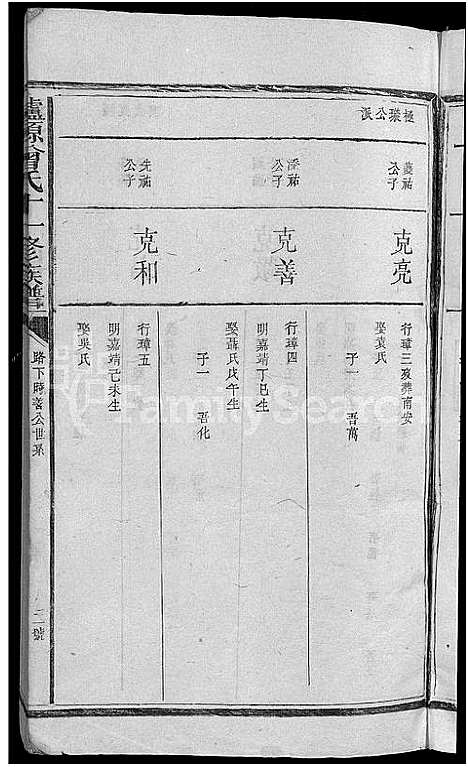 極璨公派
公子
克亮
行璋三歿葬南安
娶袁氏
子一 吾萬
濬祐
公子
克善
行璋四
明嘉靖丁巳生
娶聶氏戊午生
子一 吾化
先祐
公子
克和
行璋五
明嘉靖己未生
娶吳氏
瀘源曾氏十一修族譜
路下時善公世系
二號
FamilySearch